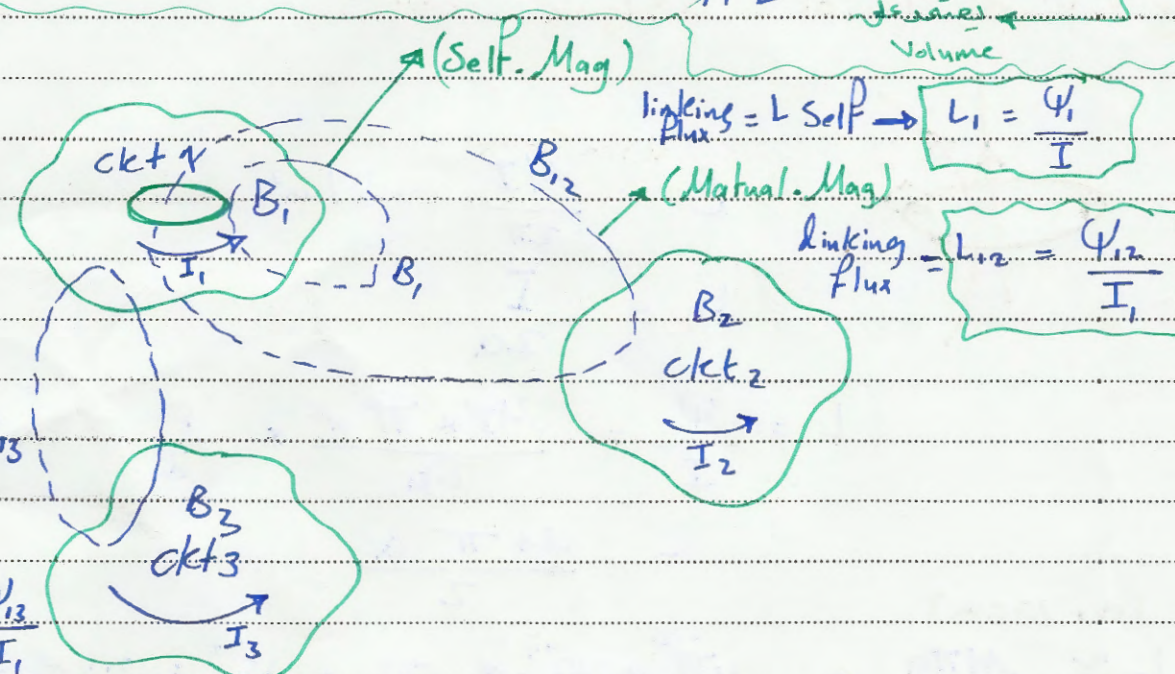 Volume
(Self. Mag)
linking flux = L Self → L₁ = Ψ₁ / I
ckt 1
B₁
I₁
B₁
B₁₂
(Matual. Mag)
linking flux = L₁₂ = Ψ₁₂ / I₁
B₂
ckt₂
I₂
13
B₃
ckt3
I₃
Ψ₁₃ / I₁